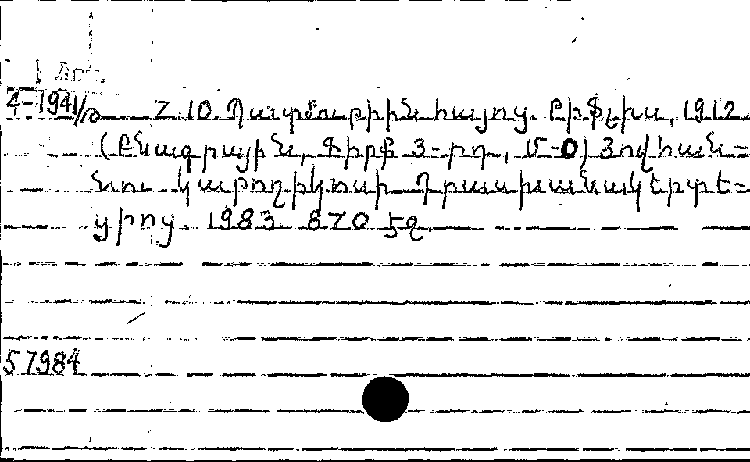 4-1941/ձ 7.10 Պատմութիւն հայոց. Թիֆլիս, 1912
(Բնագրային, Գիրք 3-րդ, Մ-0) Յովհան-
նու կաթողիկոսի Դրասխանակերտե-
ցիոյ 1983 870 52
57984